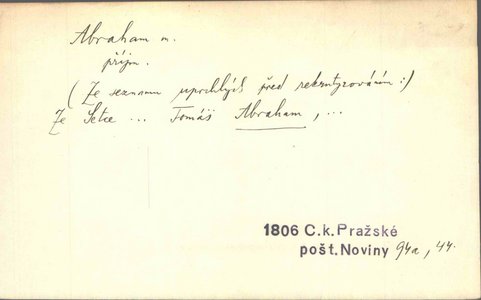 Abraham m.
příjm.
(Ze seznamu uprchlých před rekrutýrováním:)
Ze Setce ... Tomáš Abraham, ...
1806 C.k.Pražské
pošt.Noviny 94a, 44.